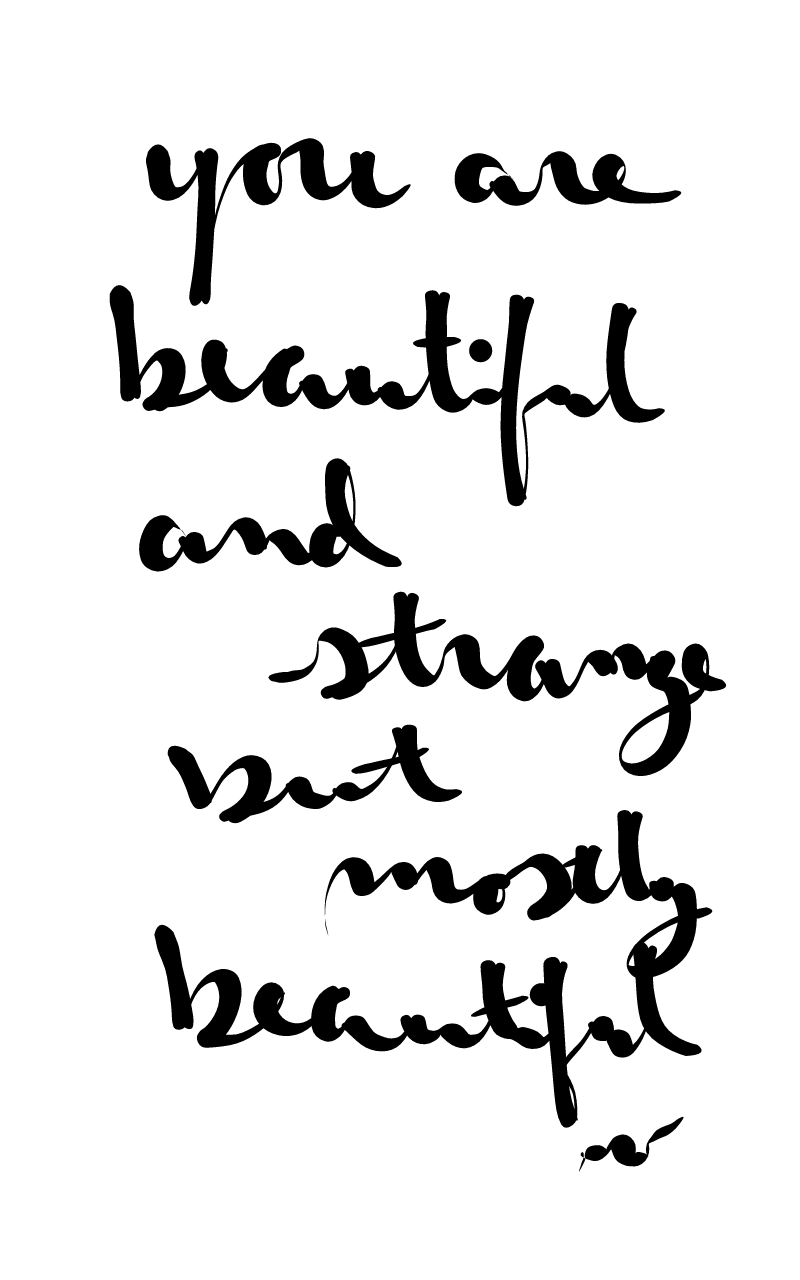 you are
beautiful
and
strange
but
mostly
beautiful